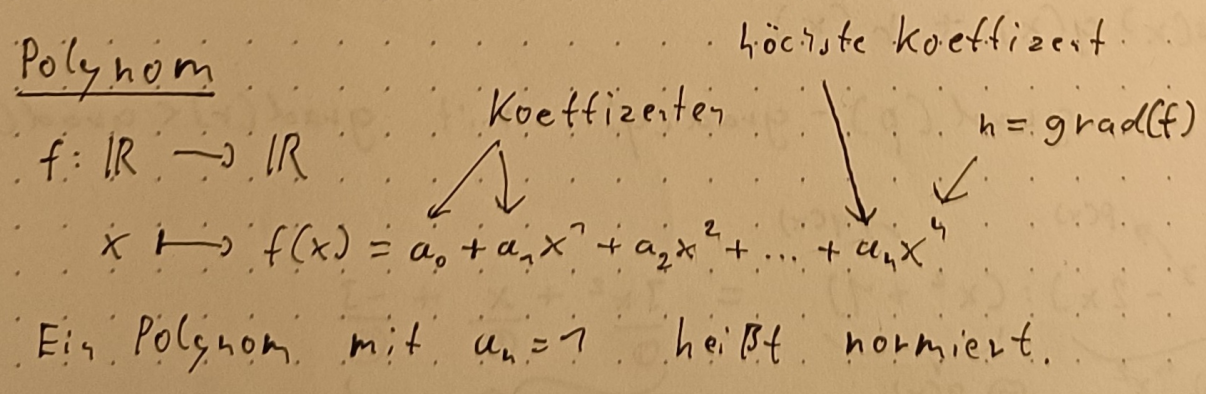 Polynom
höchste Koeffizent
Koeffizenten
n = grad(f)
f: ℝ → ℝ
x ↦ f(x) = a₀ + a₁x¹ + a₂x² + ... + aₙxⁿ
Ein Polynom mit aₙ = 1 heißt normiert.